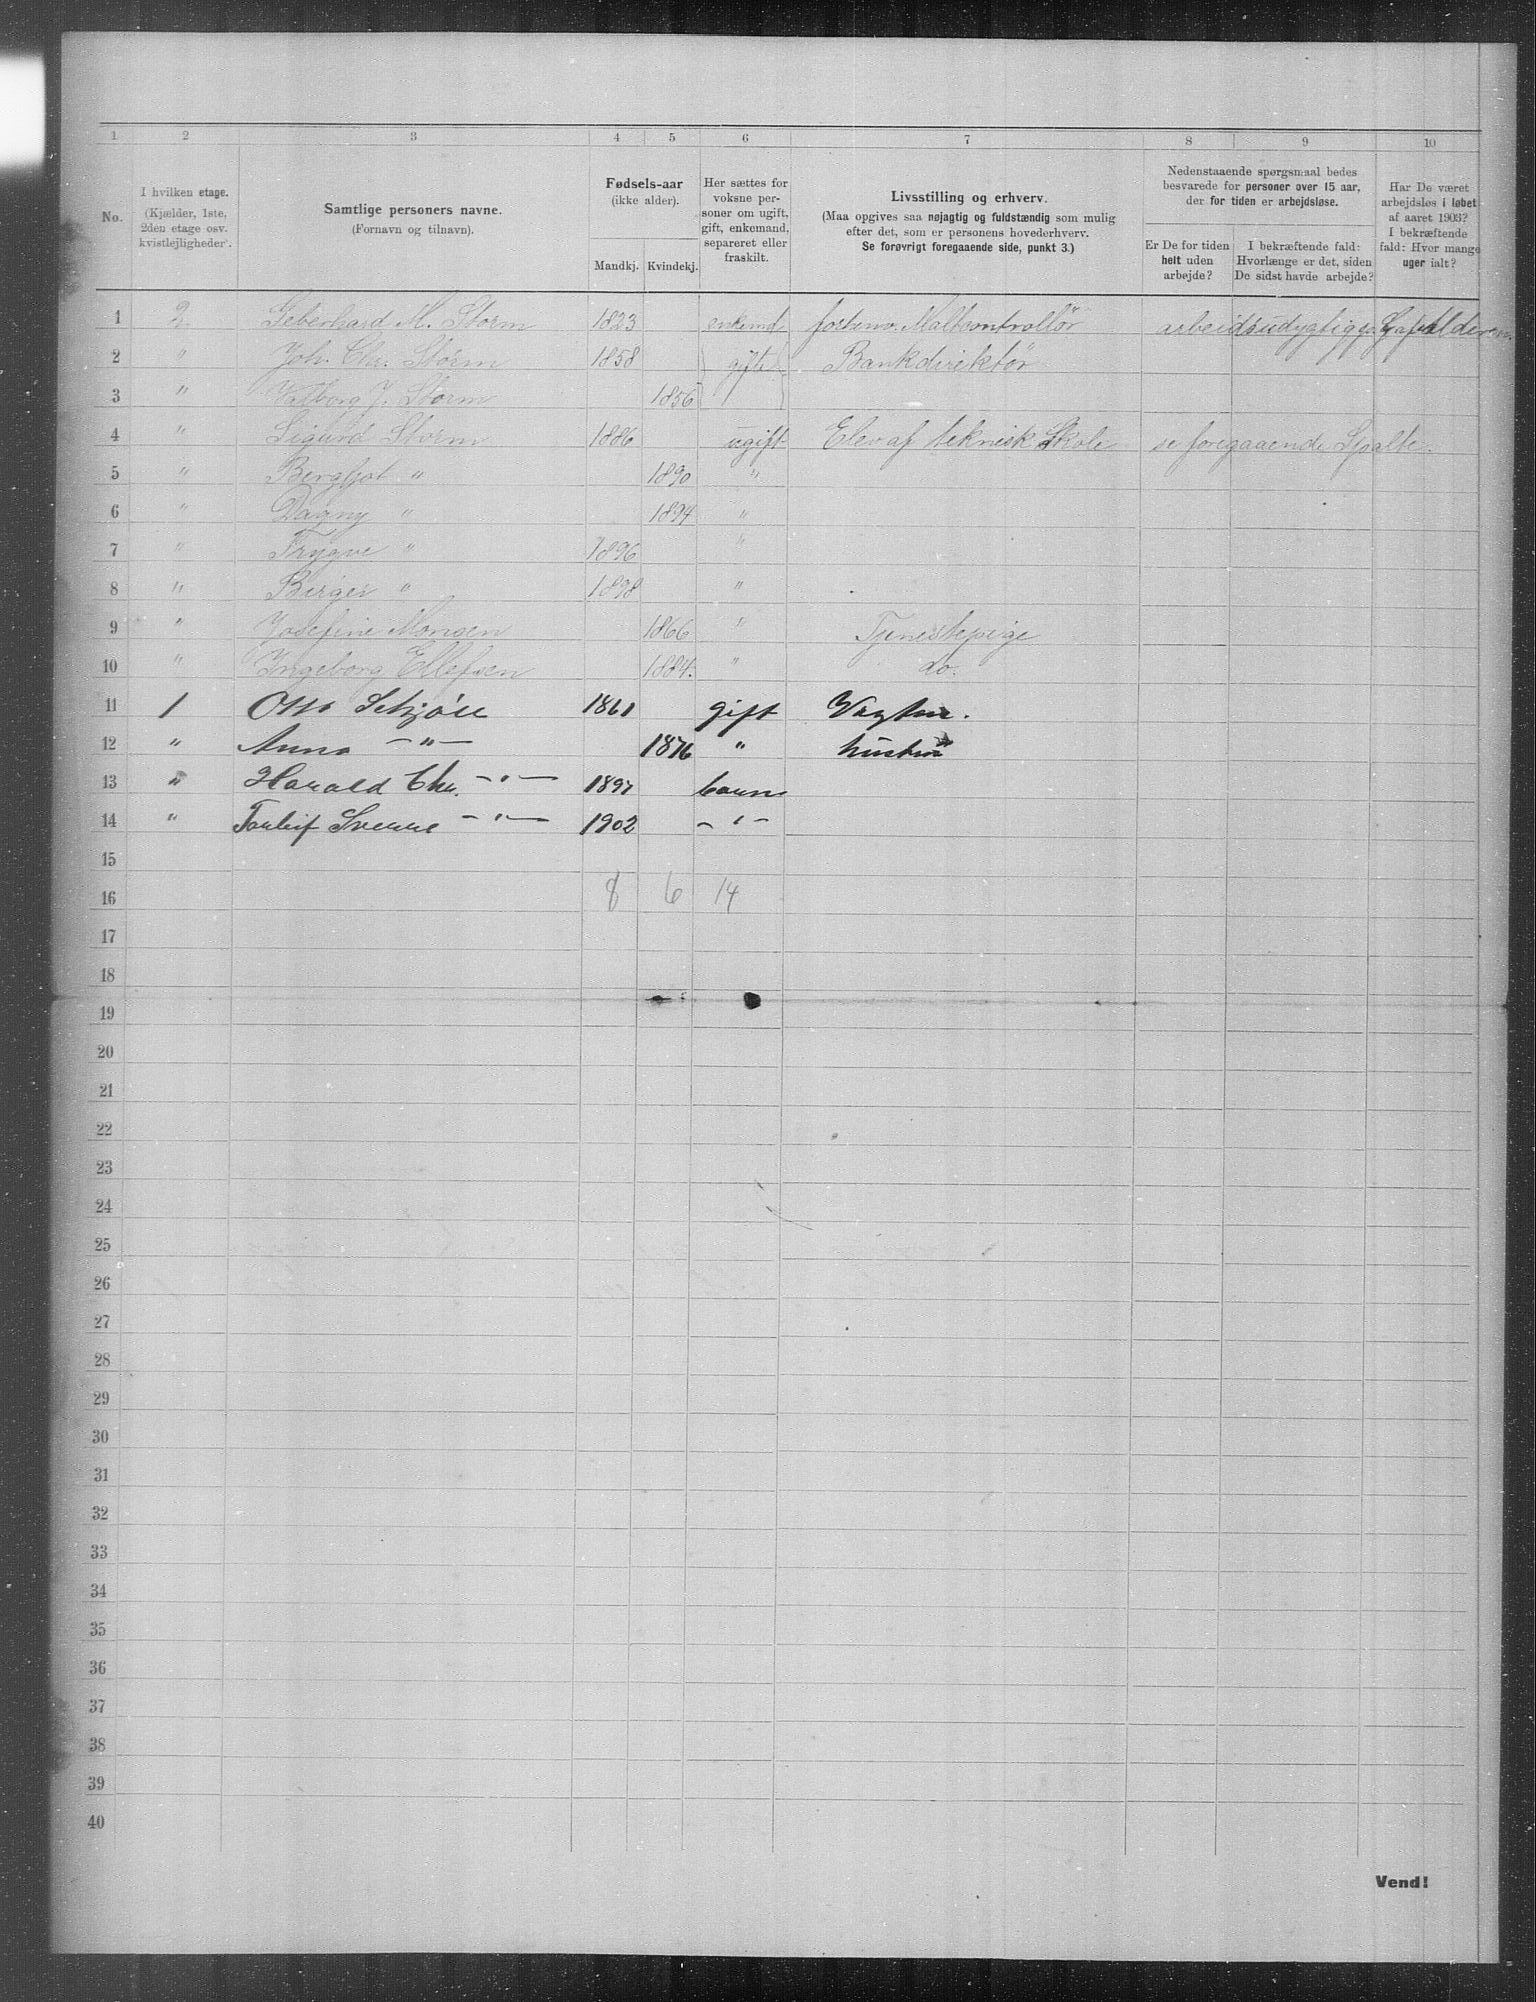 1 2 3 4 5 6 7 8 9 10
No.
I hvilken etage.
(Kjælder, 1ste,
2den etage osv.
kvistlejligheder).
Samtlige personers navne.
(Fornavn og tilnavn).
Fødsels-aar
(ikke alder).
Mandkj. Kvindekj.
Her sættes for
voksne per-
soner om ugift,
gift, enkemand,
separeret eller
fraskilt.
Livsstilling og erhverv.
(Maa opgives saa nøjagtig og fuldstændig som mulig
efter det, som er personens hovederhverv.
Se forøvrigt foregaaende side, punkt 3.)
Nedenstaaende spørgsmaal bedes
besvarede for personer over 15 aar,
der for tiden er arbejdsløse.
Er De for tiden
helt uden
arbejde?
I bekræftende fald:
Hvorlænge er det, siden
De sidst havde arbejde?
Har De været
arbejdsløs i løbet
af aaret 1903?
I bekræftende
fald: Hvor mange
uger ialt?
1 2 Geberhard M. Storm 1823 enkemd Maltcontrollør arbeidsudygtig
2 " Joh. Chr. Storm 1858 gift Bankdirektør
3 " Valborg J. Storm 1856
4 " Sigurd Storm 1886 ugift Elev af teknisk Skole se foregaaende Spalte.
5 " Bergljot " 1890 "
6 " Dagny " 1894 "
7 " Trygve " 1896 "
8 " Birger " 1898 "
9 " Josefine Monsen 1866 " Tjenestepige
10 " Ingeborg Ellefsen 1884. " do.
11 1 Otto 1861 gift
12 " Anna — " — 1876 " hustru
13 " Harald Chr. — " — 1897 barn
14 " Torleif Sverre — " — 1902 – " –
15
16 8 6 14
17
18
19
20
21
22
23
24
25
26
27
28
29
30
31
32
33
34
35
36
37
38
39
40
Vend!